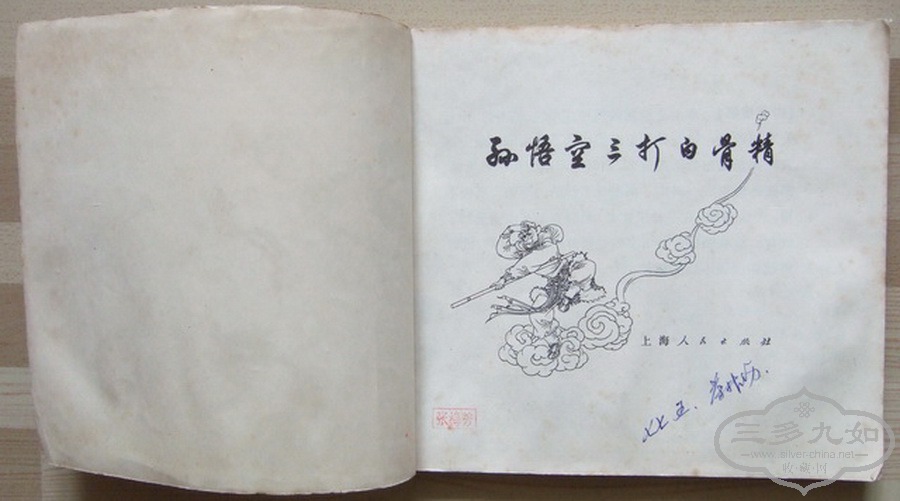 孙悟空三打白骨精
上海人民出版社
三多九如
www.silver-china.net
收·藏·网